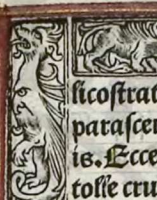 licoſtrat
paraſcen
is. Ecce
tolle cru